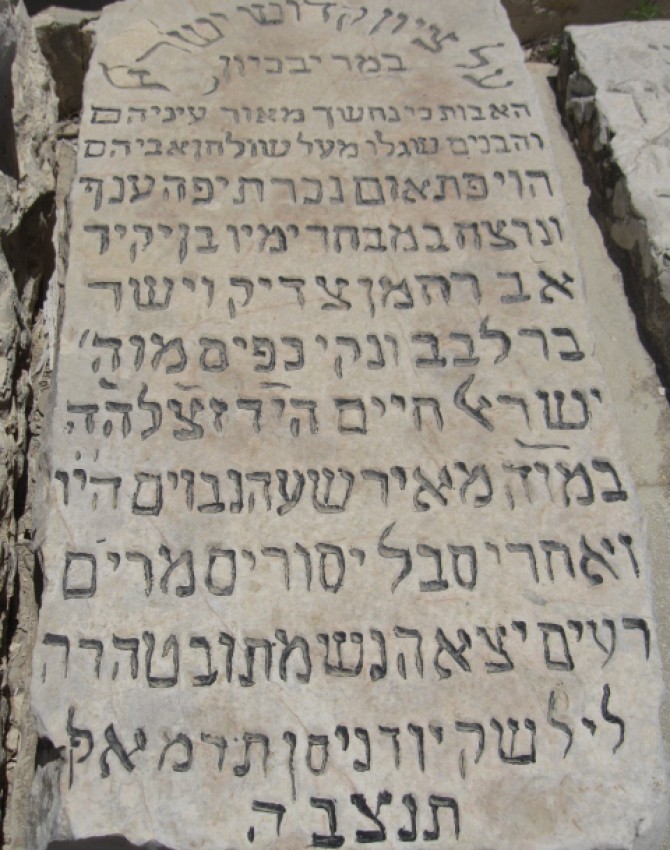 על ציון קדוש ישר
במר יבכיון
האבות כי נחשך מאור עיניהם
והבנים שגלו מעל שולחן אביהם
הוי פתאום נכרת יפה ענף
ונרצח במבחר ימיו בן יקיר
אב רחמן צדיק וישר
בר לבב ונקי כפים מוה'
ישראל חיים היד זצלהה
במוה מאיר שעהנבוים היו
ואחרי סבל יסורים מרים
רעים יצאה נשמתו בטהרה
ליל שק יוד ניסן תדמאלף
תנצבה